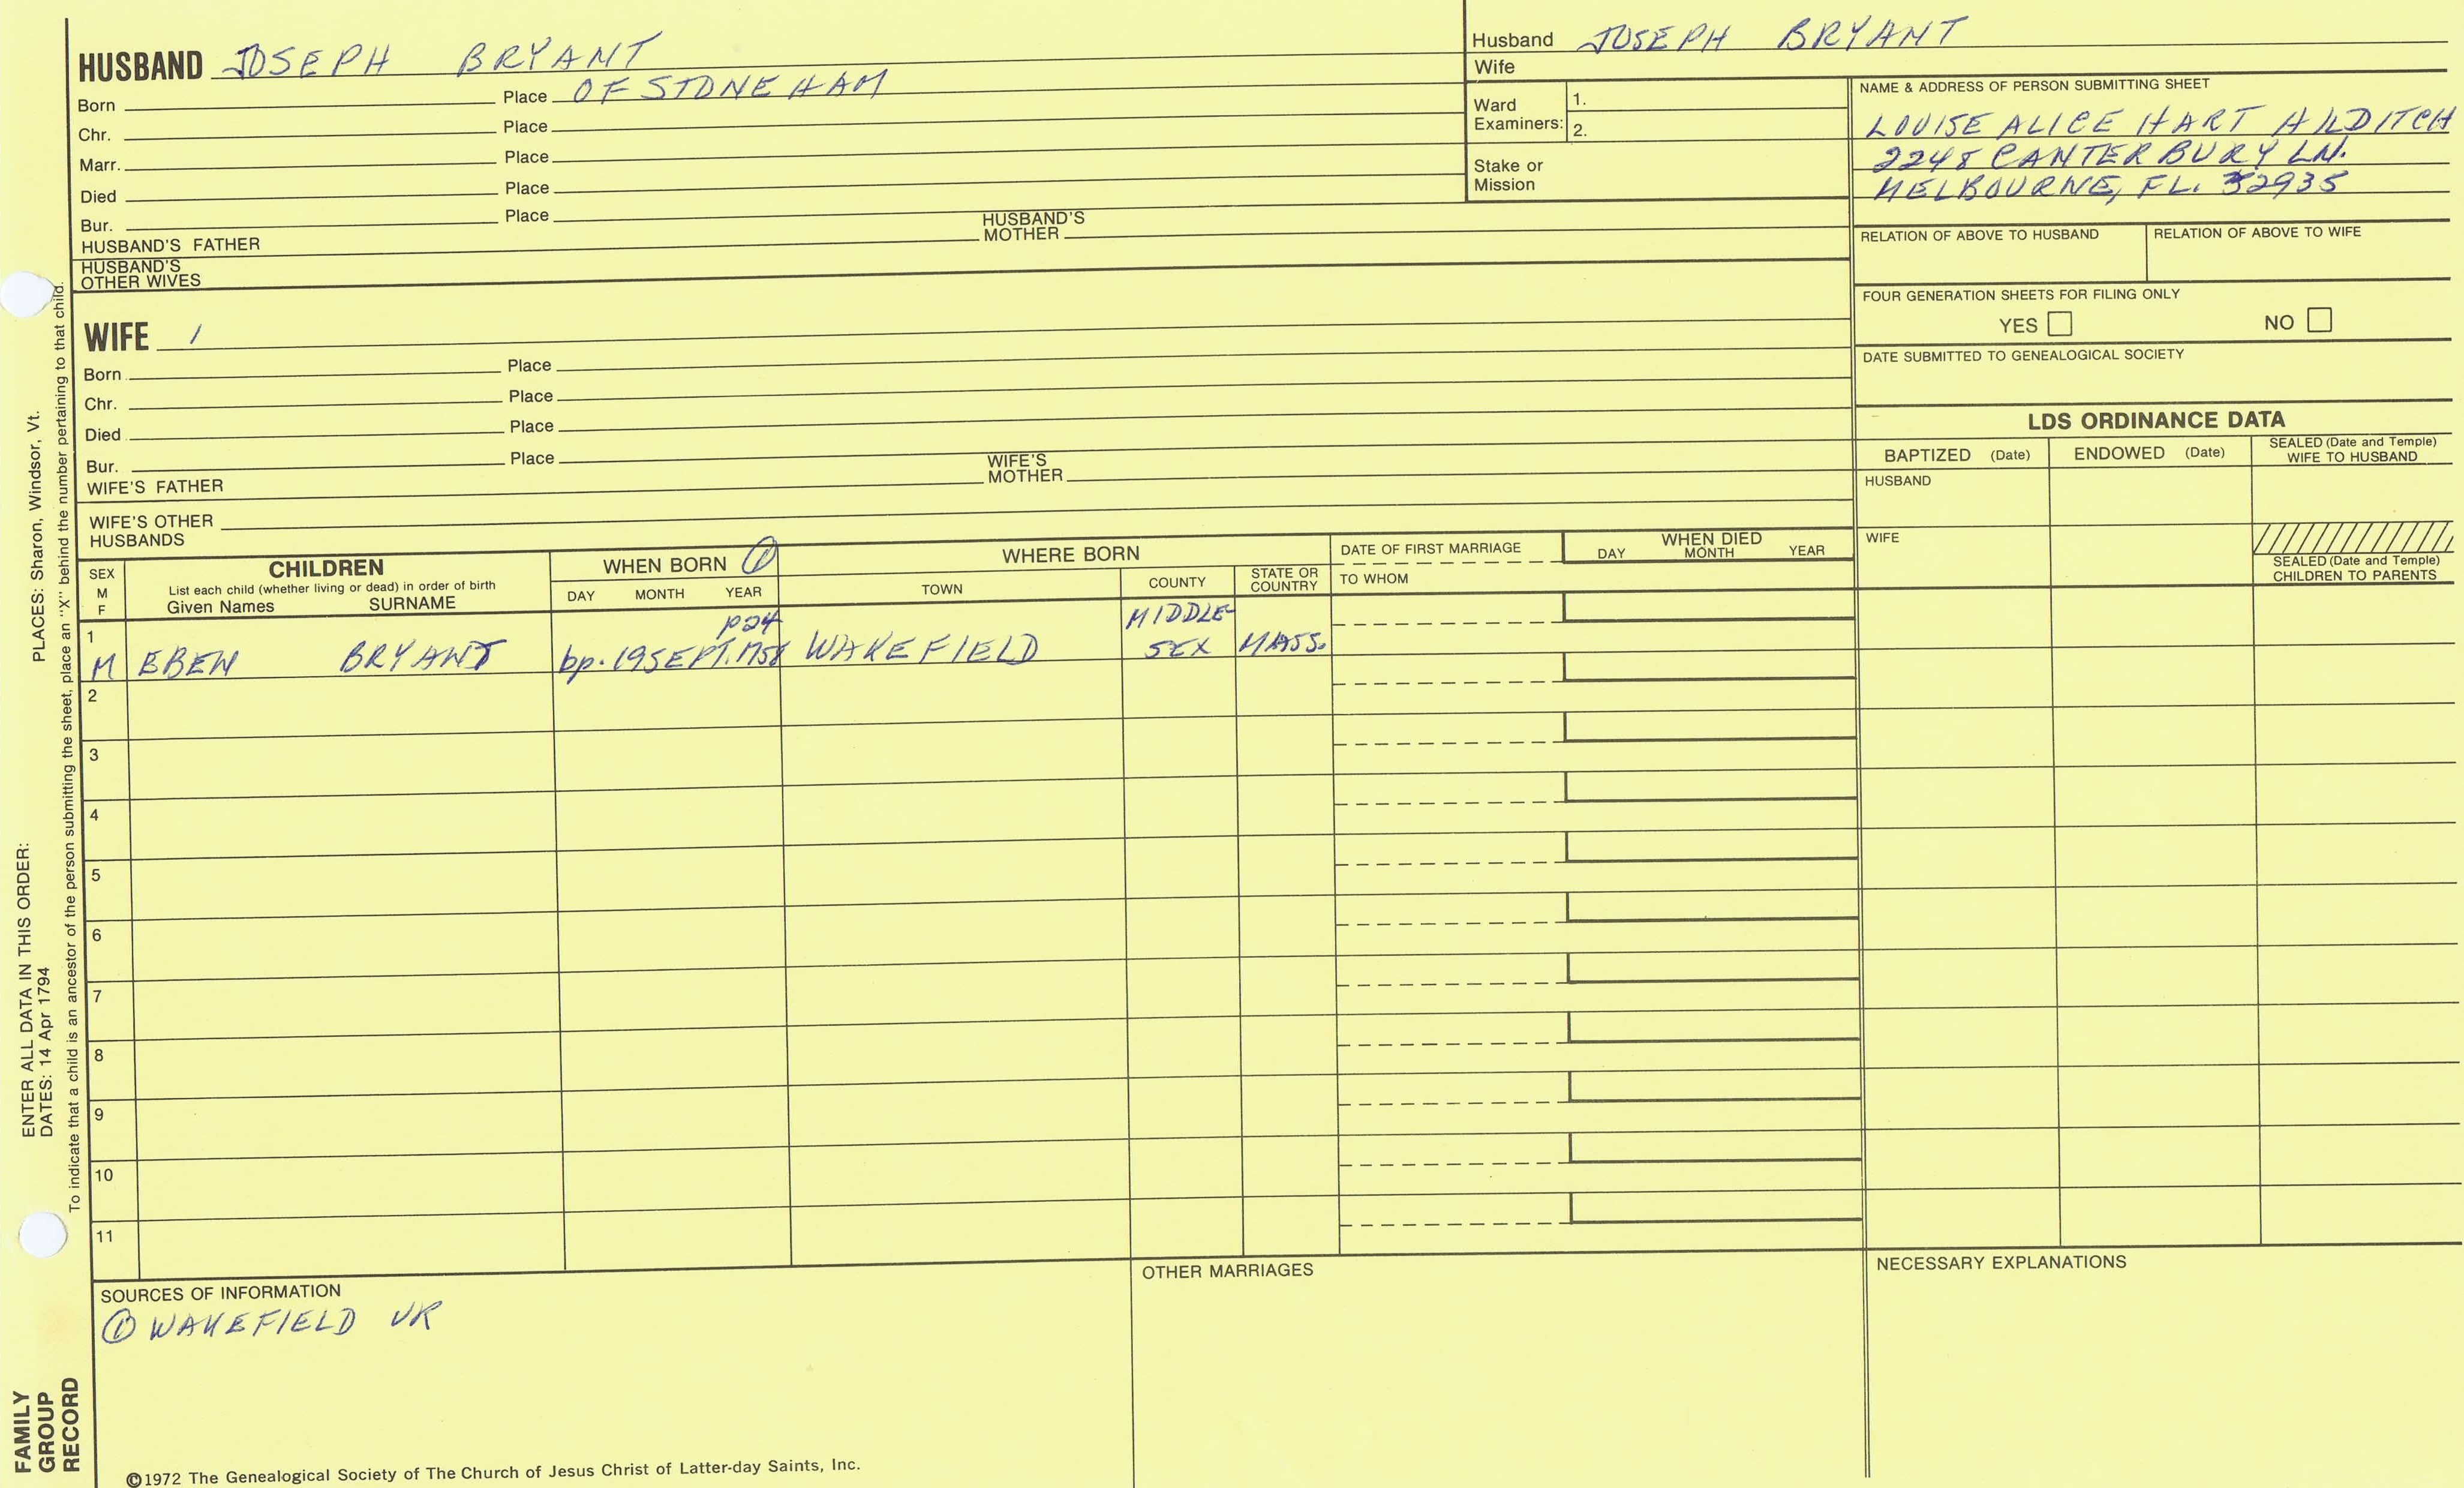 HUSBAND JOSEPH BRYANT
Born Place OF STONEHAM
Chr. Place
Marr. Place
Died Place
Bur. Place
HUSBAND'S FATHER HUSBAND'S MOTHER
HUSBAND'S OTHER WIVES
Husband JOSEPH BRYANT
Wife
Ward Examiners: 1.
2.
Stake or Mission
NAME & ADDRESS OF PERSON SUBMITTING SHEET
LOUISE ALICE HART HILDITCH
2248 CANTERBURY LN.
MELBOURNE, FL. 32935
RELATION OF ABOVE TO HUSBAND RELATION OF ABOVE TO WIFE
FOUR GENERATION SHEETS FOR FILING ONLY
YES NO
DATE SUBMITTED TO GENEALOGICAL SOCIETY
WIFE /
Born Place
Chr. Place
Died Place
Bur. Place
WIFE'S FATHER WIFE'S MOTHER
WIFE'S OTHER HUSBANDS
LDS ORDINANCE DATA
BAPTIZED (Date) ENDOWED (Date) SEALED (Date and Temple) WIFE TO HUSBAND
HUSBAND
WIFE
SEALED (Date and Temple) CHILDREN TO PARENTS
SEX M F
CHILDREN
List each child (whether living or dead) in order of birth
Given Names SURNAME
WHEN BORN ①
DAY MONTH YEAR
WHERE BORN
TOWN COUNTY STATE OR COUNTRY
DATE OF FIRST MARRIAGE
TO WHOM
WHEN DIED
DAY MONTH YEAR
1 p24 MIDDLE-
M EBEN BRYANT bp. 19 SEPT. 1758 WAKEFIELD SEX MASS.
2
3
4
5
6
7
8
9
10
11
SOURCES OF INFORMATION
① WAKEFIELD VR
OTHER MARRIAGES
NECESSARY EXPLANATIONS
©1972 The Genealogical Society of The Church of Jesus Christ of Latter-day Saints, Inc.
FAMILY GROUP RECORD
ENTER ALL DATA IN THIS ORDER:
DATES: 14 Apr 1794 PLACES: Sharon, Windsor, Vt.
To indicate that a child is an ancestor of the person submitting the sheet, place an "X" behind the number pertaining to that child.